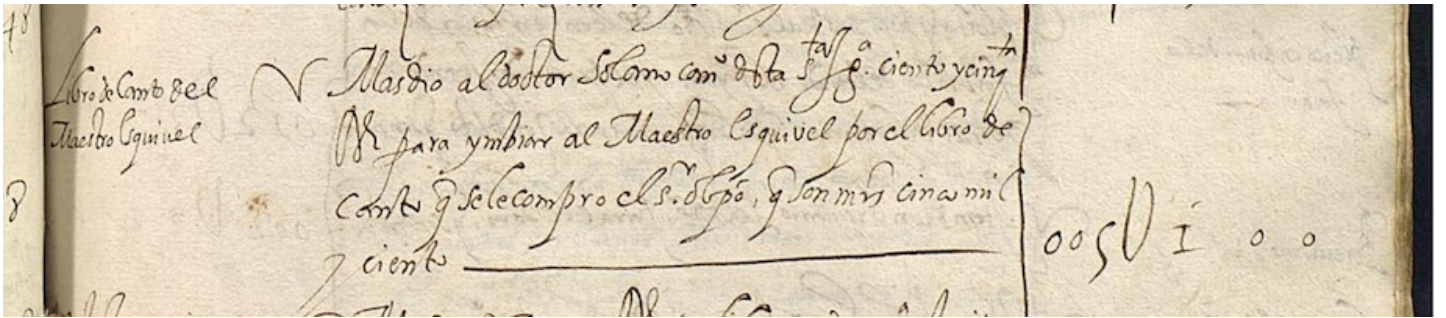 Libro de Canto del
Maestro Esquivel
V Mas dio al doctor Solano can.º dsta s.ta Jg.a ciento y cinq.ta
RR para ymbiar al Maestro Esquivel por el libro de
Canto q̃ se le compro el s.r obpõ, q̃ son mrs cinco mil
y ciento
005U100